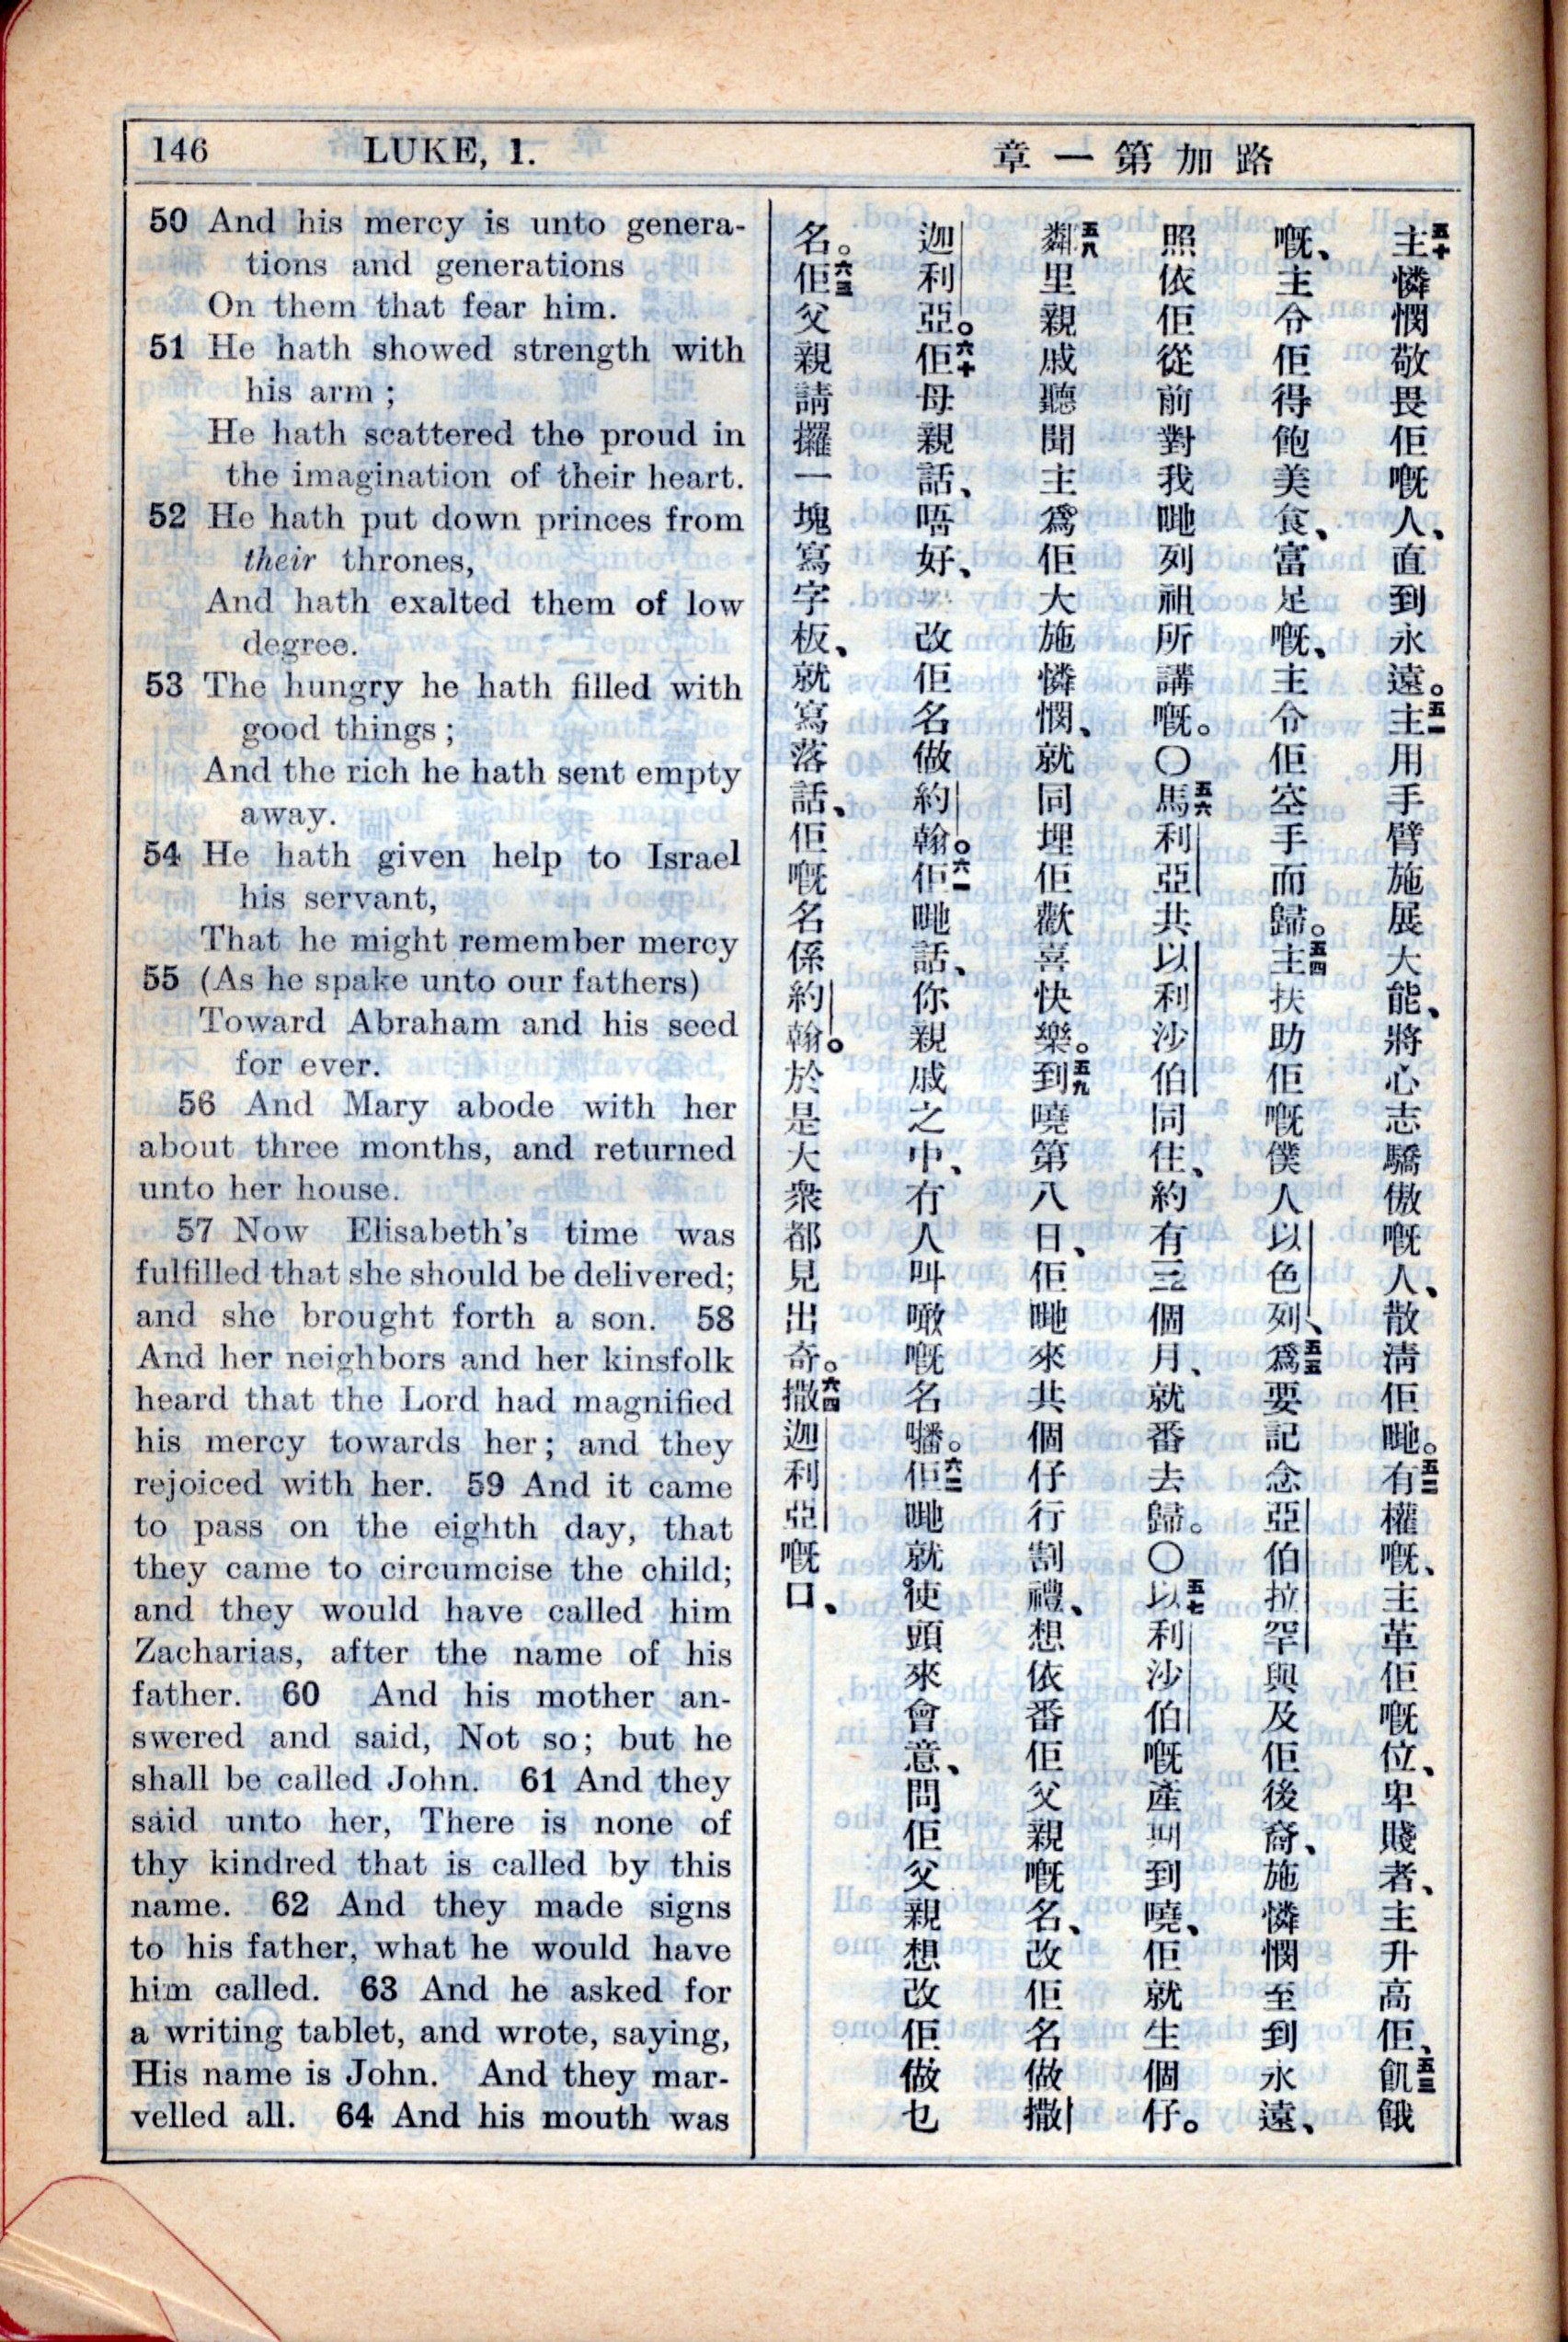 146 LUKE, 1.
章一第加路
50 And his mercy is unto genera-
tions and generations
On them that fear him.
51 He hath showed strength with
his arm ;
He hath scattered the proud in
the imagination of their heart.
52 He hath put down princes from
their thrones,
And hath exalted them of low
degree.
53 The hungry he hath filled with
good things ;
And the rich he hath sent empty
away.
54 He hath given help to Israel
his servant,
That he might remember mercy
55 (As he spake unto our fathers)
Toward Abraham and his seed
for ever.
56 And Mary abode with her
about three months, and returned
unto her house.
57 Now Elisabeth's time was
fulfilled that she should be delivered;
and she brought forth a son. 58
And her neighbors and her kinsfolk
heard that the Lord had magnified
his mercy towards her; and they
rejoiced with her. 59 And it came
to pass on the eighth day, that
they came to circumcise the child;
and they would have called him
Zacharias, after the name of his
father. 60 And his mother an-
swered and said, Not so; but he
shall be called John. 61 And they
said unto her, There is none of
thy kindred that is called by this
name. 62 And they made signs
to his father, what he would have
him called. 63 And he asked for
a writing tablet, and wrote, saying,
His name is John. And they mar-
velled all. 64 And his mouth was
五十主憐憫敬畏佢嘅人、直到永遠。五一主用手臂施展大能、將心志驕傲嘅人、散淸佢哋。五二有權嘅、主革佢嘅位、卑賤者、主升高佢、五三飢餓
嘅、主令佢得飽美食、富足嘅、主令佢空手而歸。五四主扶助佢嘅僕人以色列、五五爲要記念亞伯拉罕與及佢後裔、施憐憫至到永遠、
照依佢從前對我哋列祖所講嘅。〇五六馬利亞共以利沙伯同住、約有三個月、就番去歸。〇五七以利沙伯嘅產期到嘵、佢就生個仔。
五八鄰里親戚聽聞主爲佢大施憐憫、就同埋佢歡喜快樂。五九到嘵第八日、佢哋來共個仔行割禮、想依番佢父親嘅名、改佢名做撒
迦利亞。六十佢母親話、唔好、改佢名做約翰。六一佢哋話、你親戚之中、冇人叫噉嘅名㗎。六二佢哋就使頭來會意、問佢父親想改佢做乜
名。六三佢父親請攞一塊寫字板、就寫落話、佢嘅名係約翰。於是大衆都見出奇。六四撒迦利亞嘅口、